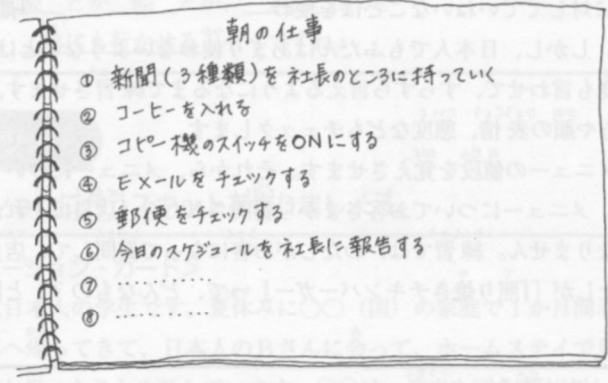 朝の仕事
① 新聞(3種類)を社長のところに持っていく
② コーヒーを入れる
③ コピー機のスイッチをONにする
④ Eメールをチェックする
⑤ 郵便をチェックする
⑥ 今日のスケジュールを社長に報告する
⑦ ..........
⑧ ..........